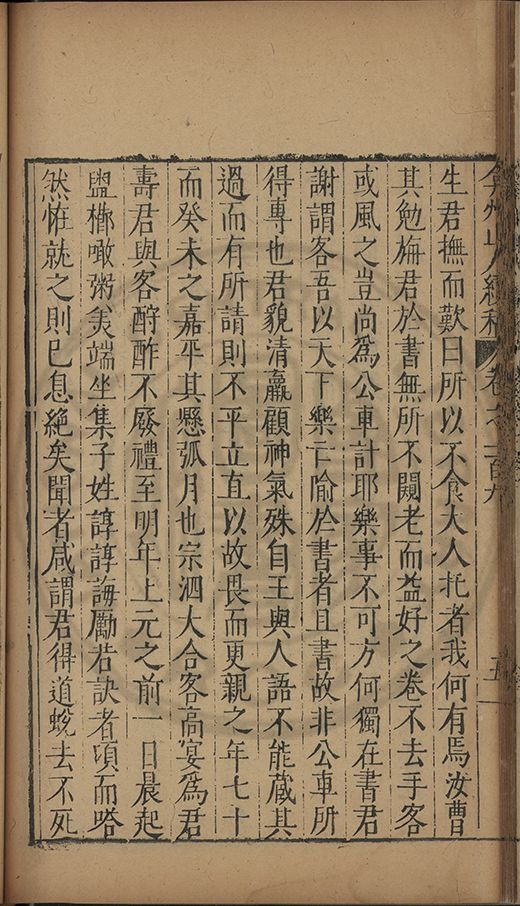 弇州山人續稿 卷之一百九 五
生君撫而歎曰所以不食大人托者我何有焉汝曹
其勉旃君於書無所不闚老而益好之卷不去手客
或風之豈尚爲公車計耶樂事不可方何獨在書君
謝謂客吾以天下樂亡喻於書者且書故非公車所
得專也君貌清羸顧神氣殊自王與人語不能蔵其
過而有所請則不平立直以故畏而更親之年七十
而癸未之嘉平其懸弧月也宗泗大合客高宴爲君
壽君與客酧酢不廢禮至明年上元之前一日晨起
盥櫛噉粥矣端坐集子姓諄諄誨勵若訣者頃而嗒
然恠就之則已息絕矣聞者咸謂君得道蛻去不死